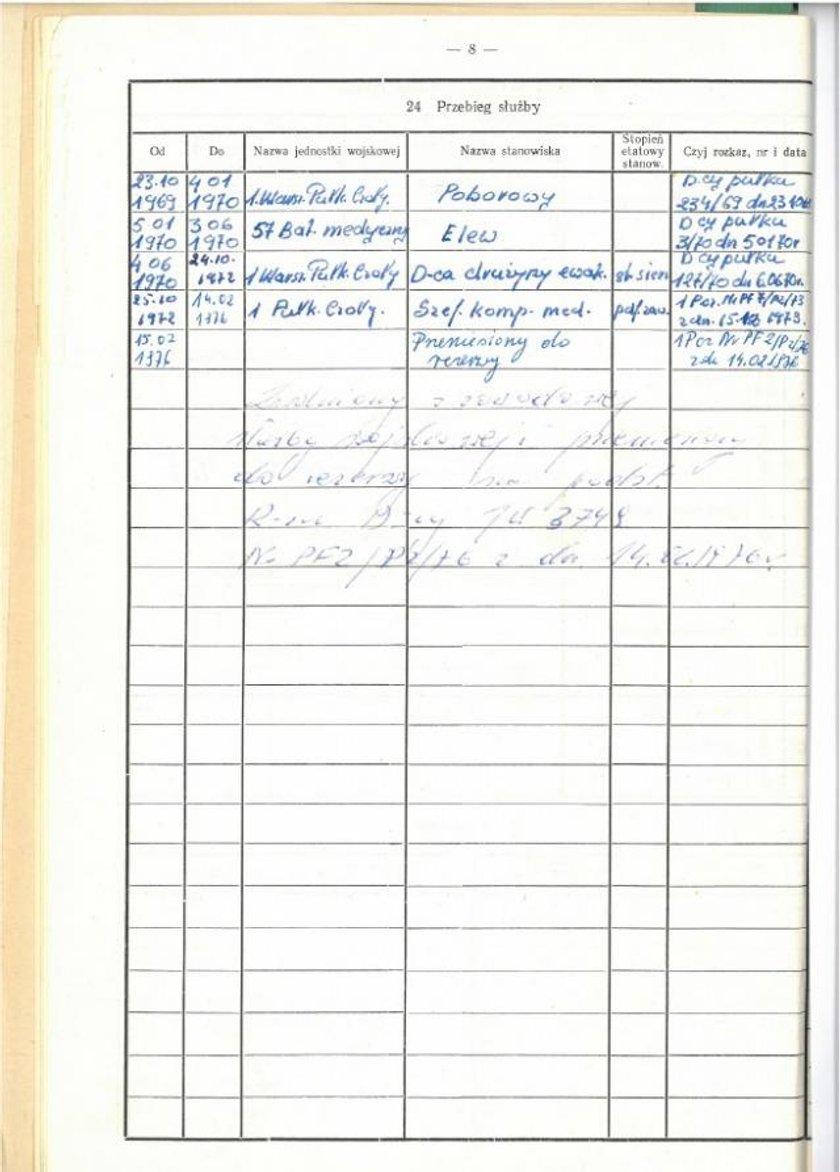 — 8 —
24 Przebieg służby
Od Do Nazwa jednostki wojskowej Nazwa stanowiska Stopień etatowy stanow. Czyj rozkaz, nr i data
23.10 4 01 D-cy pułku
1969 1970 1. Warsz. Pułk. Czołg. Poborowy 234/69 dn 23 10
5 01 3 06 57 Bat. medyczny Elew D cy pułku
1970 1970 3/70 dn 5 01 70r
4 06 24.10. D cy pułku
1970 1972 1 Warsz. Pułk. Czołg D-ca drużyny ewak. st. sierż 127/70 dn 6.06.70r.
25.10 14.02 1 Pułk. Czołg. Szef. komp. med.
1972 1976 1973.
15.02 Przeniesiony do
1976 rezerwy 14.02.1976
Zwolniony z zawodowej
służby wojskowej i przeniesiony
do rezerwy na podst.
D-cy JW 3749
Nr PF2/P2/76 z dn. 14.02.1976r